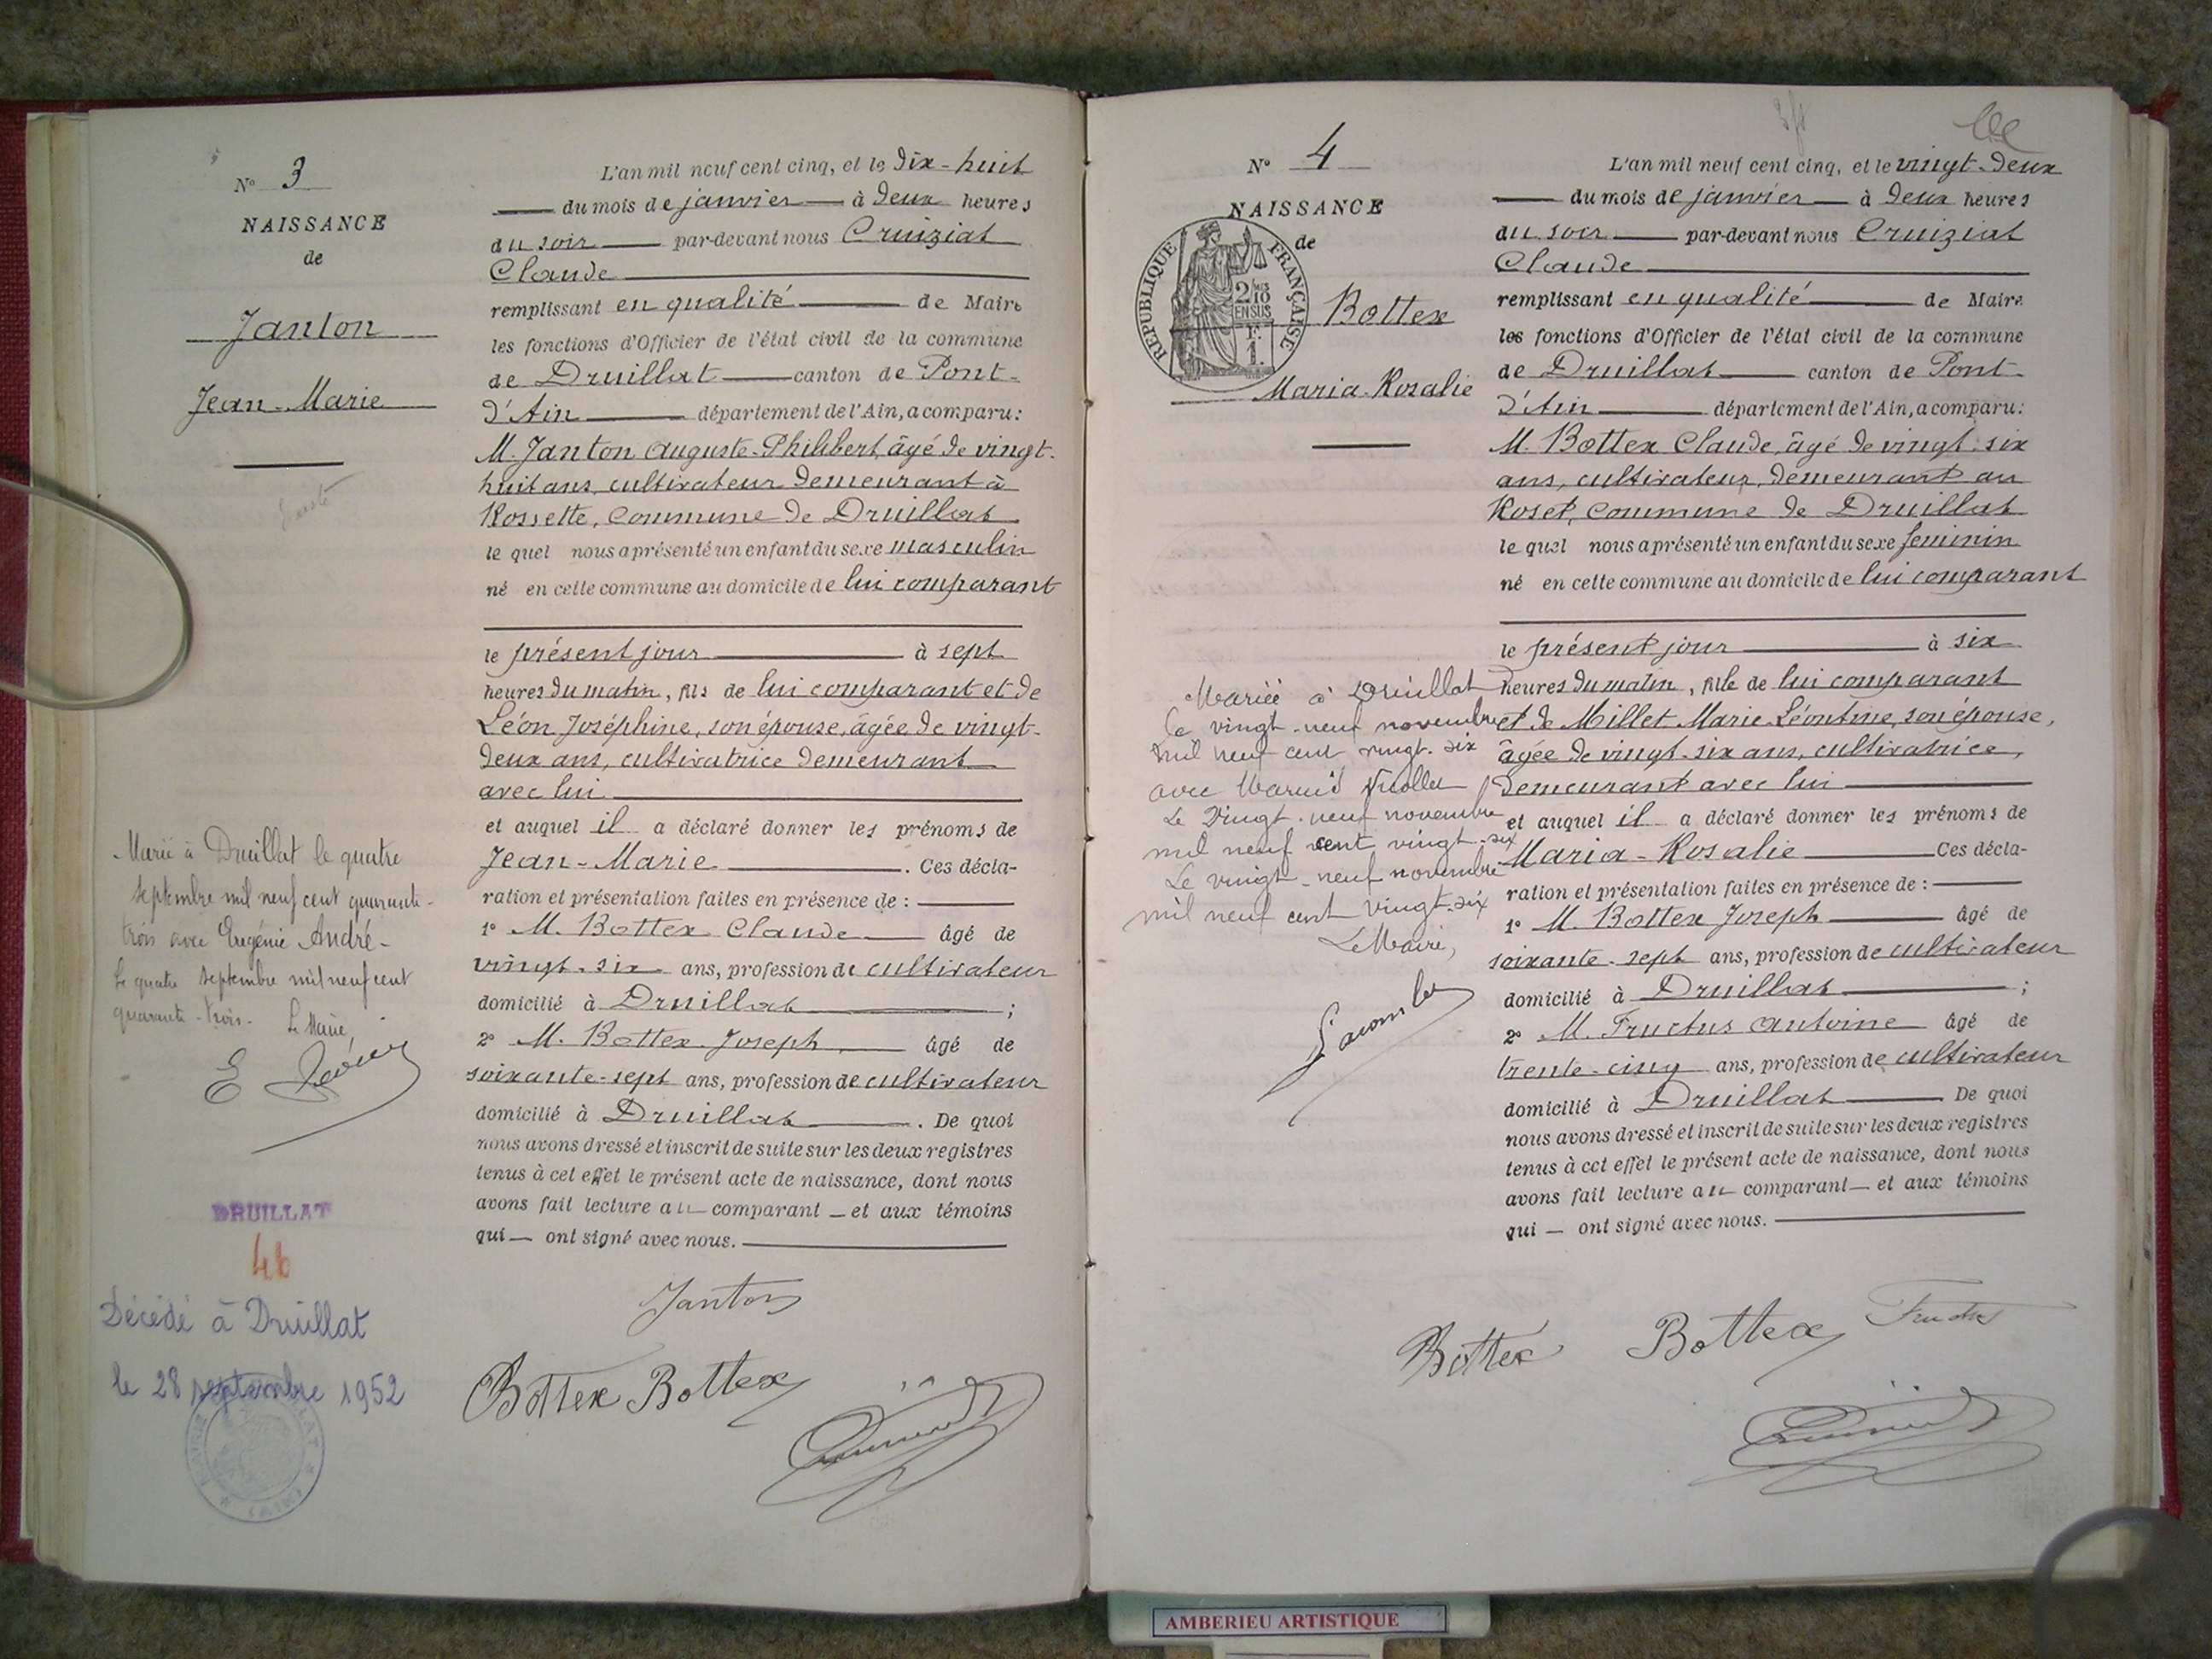 N° 3
NAISSANCE
de
Janton
Jean-Marie
L'an mil neuf cent cinq, et le dix-huit
du mois de janvier à deux heures
du soir par-devant nous Cruiziat
Claude
remplissant en qualité de Maire
les fonctions d'Officier de l'état civil de la commune
de Druillat canton de Pont-
d'Ain département de l'Ain, a comparu:
M. Janton Auguste-Philibert, âgé de vingt-
huit ans, cultivateur demeurant à
Rossette, commune de Druillat
le quel nous a présenté un enfant du sexe masculin
né en cette commune au domicile de lui comparant
le présent jour à sept
heures du matin, fils de lui comparant et de
Léon Joséphine, son épouse, âgée de vingt-
deux ans, cultivatrice demeurant
avec lui
et auquel il a déclaré donner les prénoms de
Jean-Marie. Ces décla-
ration et présentation faites en présence de :
1° M. Bottex Claude âgé de
vingt-six ans, profession de cultivateur
domicilié à Druillat ;
2° M. Bottex Joseph, âgé de
soixante-sept ans, profession de cultivateur
domicilié à Druillat. De quoi
nous avons dressé et inscrit de suite sur les deux registres
tenus à cet effet le présent acte de naissance, dont nous
avons fait lecture au comparant et aux témoins
qui ont signé avec nous.
Janton
Bottex Bottex
Marié à Druillat le quatre
septembre mil neuf cent quarante-
trois avec Eugénie André-
Le quatre septembre mil neuf cent
quarante-trois. Le Maire,
DRUILLAT
46
Décédé à Druillat
le 28 septembre 1952
N° 4
NAISSANCE
de
REPUBLIQUE FRANÇAISE
2/10 EN SUS
F.
1.
Bottex
Maria-Rosalie
L'an mil neuf cent cinq, et le vingt-deux
du mois de janvier à deux heures
du soir par-devant nous Cruiziat
Claude
remplissant en qualité de Maire
les fonctions d'Officier de l'état civil de la commune
de Druillat canton de Pont-
d'Ain département de l'Ain, a comparu:
M. Bottex Claude, âgé de vingt-six
ans, cultivateur, demeurant au
Roset, commune de Druillat
le quel nous a présenté un enfant du sexe féminin
né en cette commune au domicile de lui comparant
le présent jour à six
heures du matin, fille de lui comparant
et de Millet Marie-Léontine, son épouse,
âgée de vingt-six ans, cultivatrice,
demeurant avec lui
et auquel il a déclaré donner les prénoms de
Maria-Rosalie Ces décla-
ration et présentation faites en présence de :
1° M. Bottex Joseph âgé de
soixante-sept ans, profession de cultivateur
domicilié à Druillat ;
2° M. Fructus Antoine âgé de
trente-cinq ans, profession de cultivateur
domicilié à Druillat De quoi
nous avons dressé et inscrit de suite sur les deux registres
tenus à cet effet le présent acte de naissance, dont nous
avons fait lecture au comparant et aux témoins
qui ont signé avec nous.
Bottex Bottex Fructus
Mariée à Druillat
le vingt-neuf novembre
mil neuf cent vingt-six
avec
Le vingt-neuf novembre
mil neuf cent vingt-six
Le vingt-neuf novembre
mil neuf cent vingt-six
Le Maire,
AMBERIEU ARTISTIQUE